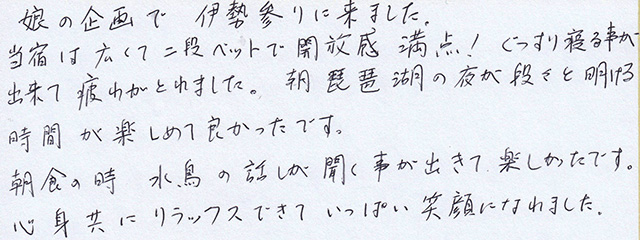 娘の企画で 伊勢参りに来ました。
当宿は広くて二段ベットで開放感 満点! ぐっすり寝る事が
出来て疲れがとれました。朝 琵琶湖の夜が段々と明ける
時間が楽しめて良かったです。
朝食の時 水鳥の話しが聞く事が出きて 楽しかったです。
心身共にリラックスできていっぱい笑顔になれました。